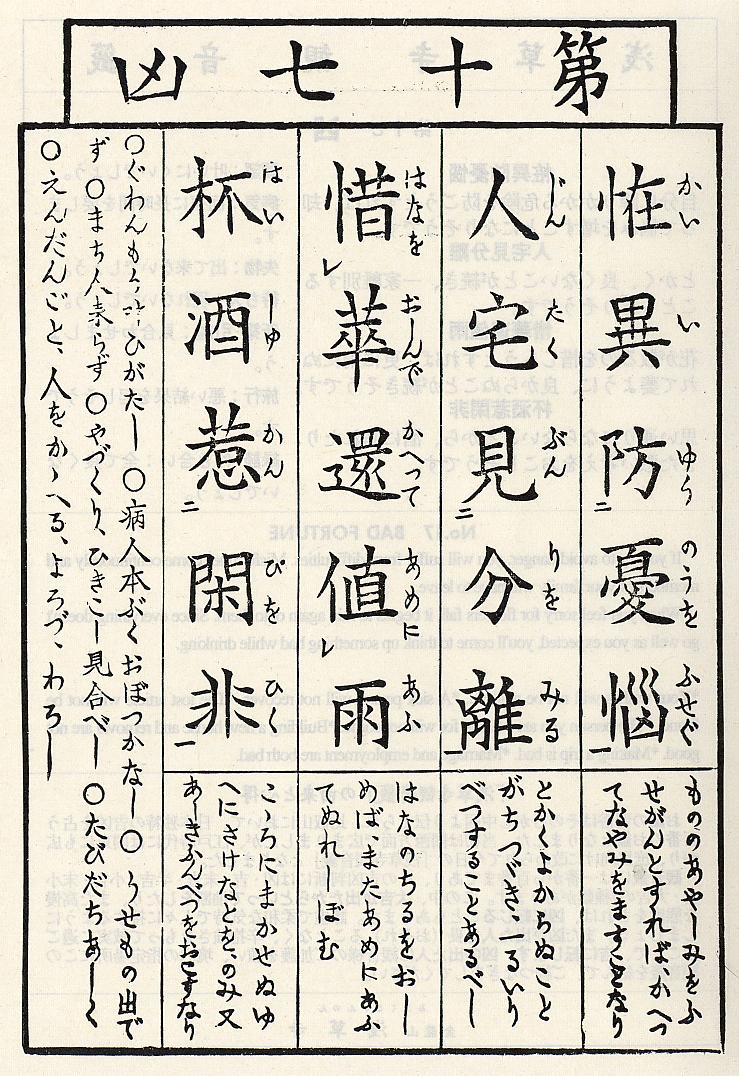 第十七凶
恠異防憂悩
かい い ゆう のうを ふせぐ
もののあやしみをふ
せがんとすれば、かへつ
てなやみをますことなり
人宅見分離
じん たく ぶん りを みる
とかくよからぬこと
がちつゞき、一るいり
べつすることあるべし
惜華還値雨
はなを おしんで かへつて あめに あふ
はなのちるをおし
めば、またあめにあふ
てぬれしぼむ
杯酒惹閑非
はい しゆ かん ぴを ひく
こゝろにまかせぬゆ
へにさけなどを、のみ又
あしきふんべつをおこすなり
〇ぐわんもう叶ひがたし 〇病人本ぶくおぼつかなし 〇うせもの出で
ず 〇まち人来らず 〇やづくり、ひきこし見合べし 〇たびだちあしく
〇えんだんごと、人をかゝへる、よろづ、わろし